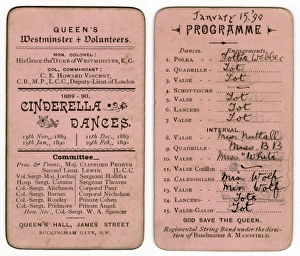 QUEEN'S
Westminster Volunteers.
HON. COLONEL:
His Grace the DUKE OF WESTMINSTER, K.G.
COL. COMMANDANT:
C. E. HOWARD VINCENT,
C.B., M.P., L.C.C., Deputy-Lieut. of London
1889-90.
CINDERELLA
DANCES.
15th Nov., 1889 11th Dec., 1889
15th Jan., 1890 19th Feb., 1890
Committee—
Pres. & Treas., Major CLIFFORD PROBYN
Second Lieut. LEWIS. [L.C.C.
Vol.-Sergt.-Maj. Jordan Sergeant Hallifax
Hosp.-Sergt. Sergeant
Col.-Sergt. Sergeant Burgess
Col.-Sergt. Corporal
Col.-Sergt. Probyn Corporal Cohen
Col.-Sergt. Pridmore Private Angel
Hon. Sec., Col.-Sergt. W. A. Spencer
QUEEN'S HALL, JAMES STREET
BUCKINGHAM GATE, S.W.
January 15. 90
PROGRAMME
Dances. Engagements.
1. POLKA Lottie Webber
2. QUADRILLE Tot
3. VALSE Tot
4. SCHOTTISCHE
5. VALSE Tot
6. LANCERS Tot
7. VALSE Tot
INTERVAL
8. VALSE Miss Nuttall
9. QUADRILLE Miss BB
10. VALSE Miss White
11. VALSE Cotillon
12. CALEDONIANS Miss Wolf
13. VALSE Miss Wolf
14. LANCERS Tot
15. VALSE-GALOP Tot
GOD SAVE THE QUEEN.
Regimental String Band under the direction
of Bandmaster A. MANSFIELD.